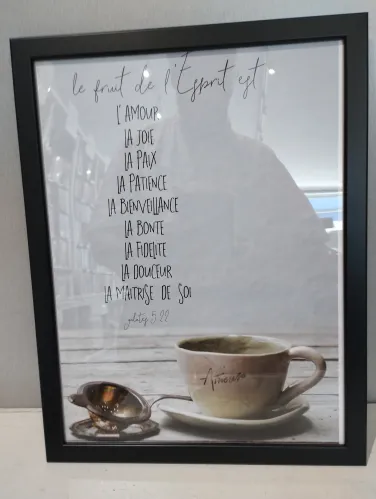 le fruit de l'Esprit est
L'AMOUR
LA JOIE
LA PAIX
LA PATIENCE
LA BIENVEILLANCE
LA BONTE
LA FIDELITE
LA DOUCEUR
LA MAITRISE DE SOI
galates 5:22